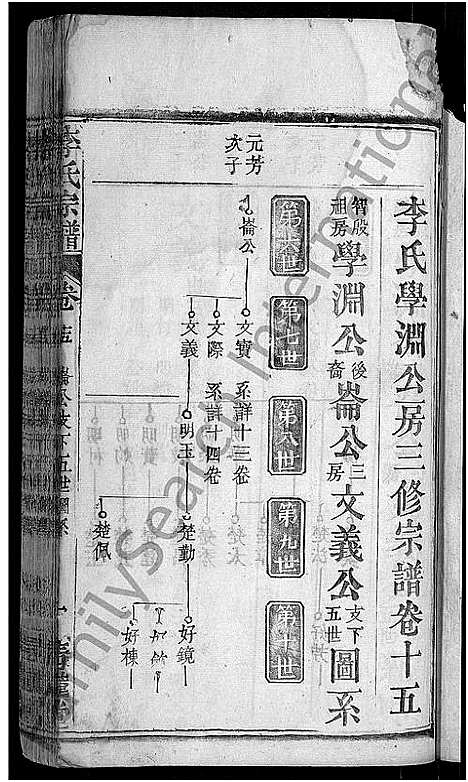 李氏學淵公房三修宗譜卷十五
智殿祖房學淵公後裔崙公三房文義公支下五世圖系
第六世
第七世
第八世
第九世
第十世
元芳
次子
崙公
文寳 系詳十三卷
文際 系詳十四卷
文義
明玉
楚勤
楚佩
好鏡
好棟
李氏宗譜
卷
FamilySearch International